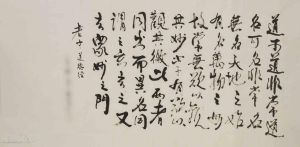 道可道非常道
名可名非常名
無名天地之始
有名萬物之母
故常無欲以觀
其妙常有欲以
觀其徼此兩者
同出而異名同
謂之玄玄之又
玄眾妙之門
老子道德經